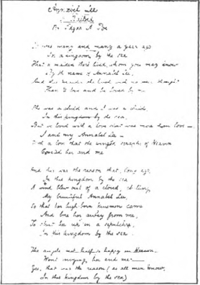 Annabel Lee
By Edgar A Poe
It was many and many a year ago
In a kingdom by the sea
That a maiden there lived whom you may know
By the name of Annabel Lee
And this maiden she lived with no other thought
Than to love and be loved by me
She was a child and I was a child
In this kingdom by the sea
But we loved with a love that was more than love
I and my Annabel Lee
With a love that the winged seraphs of Heaven
Coveted her and me
And this was the reason that, long ago,
In this kingdom by the sea
A wind blew out of a cloud, chilling
My beautiful Annabel Lee
So that her high born kinsmen came
And bore her away from me,
To shut her up in a sepulchre,
In this kingdom by the sea
The angels not half so happy in Heaven,
Went envying her and me
Yes, that was the reason (as all men know,
In this kingdom by the sea)